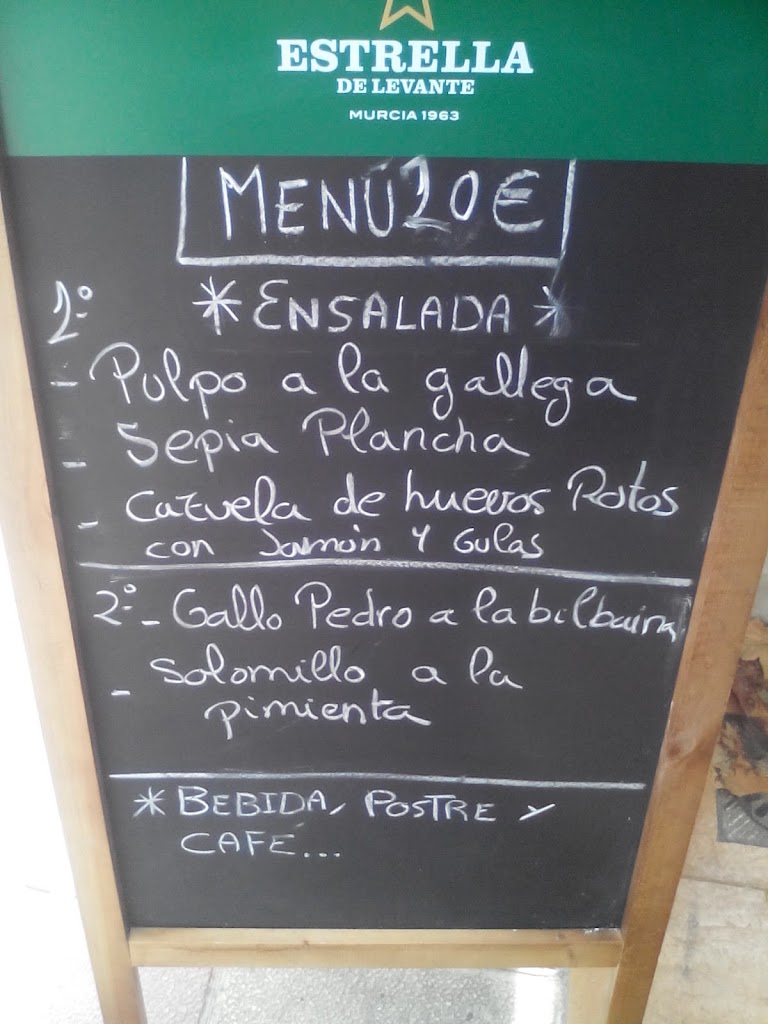 ESTRELLA
DE LEVANTE
MURCIA 1963
MENÚ 20€
1º * ENSALADA *
- Pulpo a la gallega
- Sepia Plancha
- Cazuela de huevos Rotos
con Jamón Y Gulas
2º - Gallo Pedro a la bilbaina
- Solomillo a la
pimienta
* BEBIDA, POSTRE Y
CAFÉ...